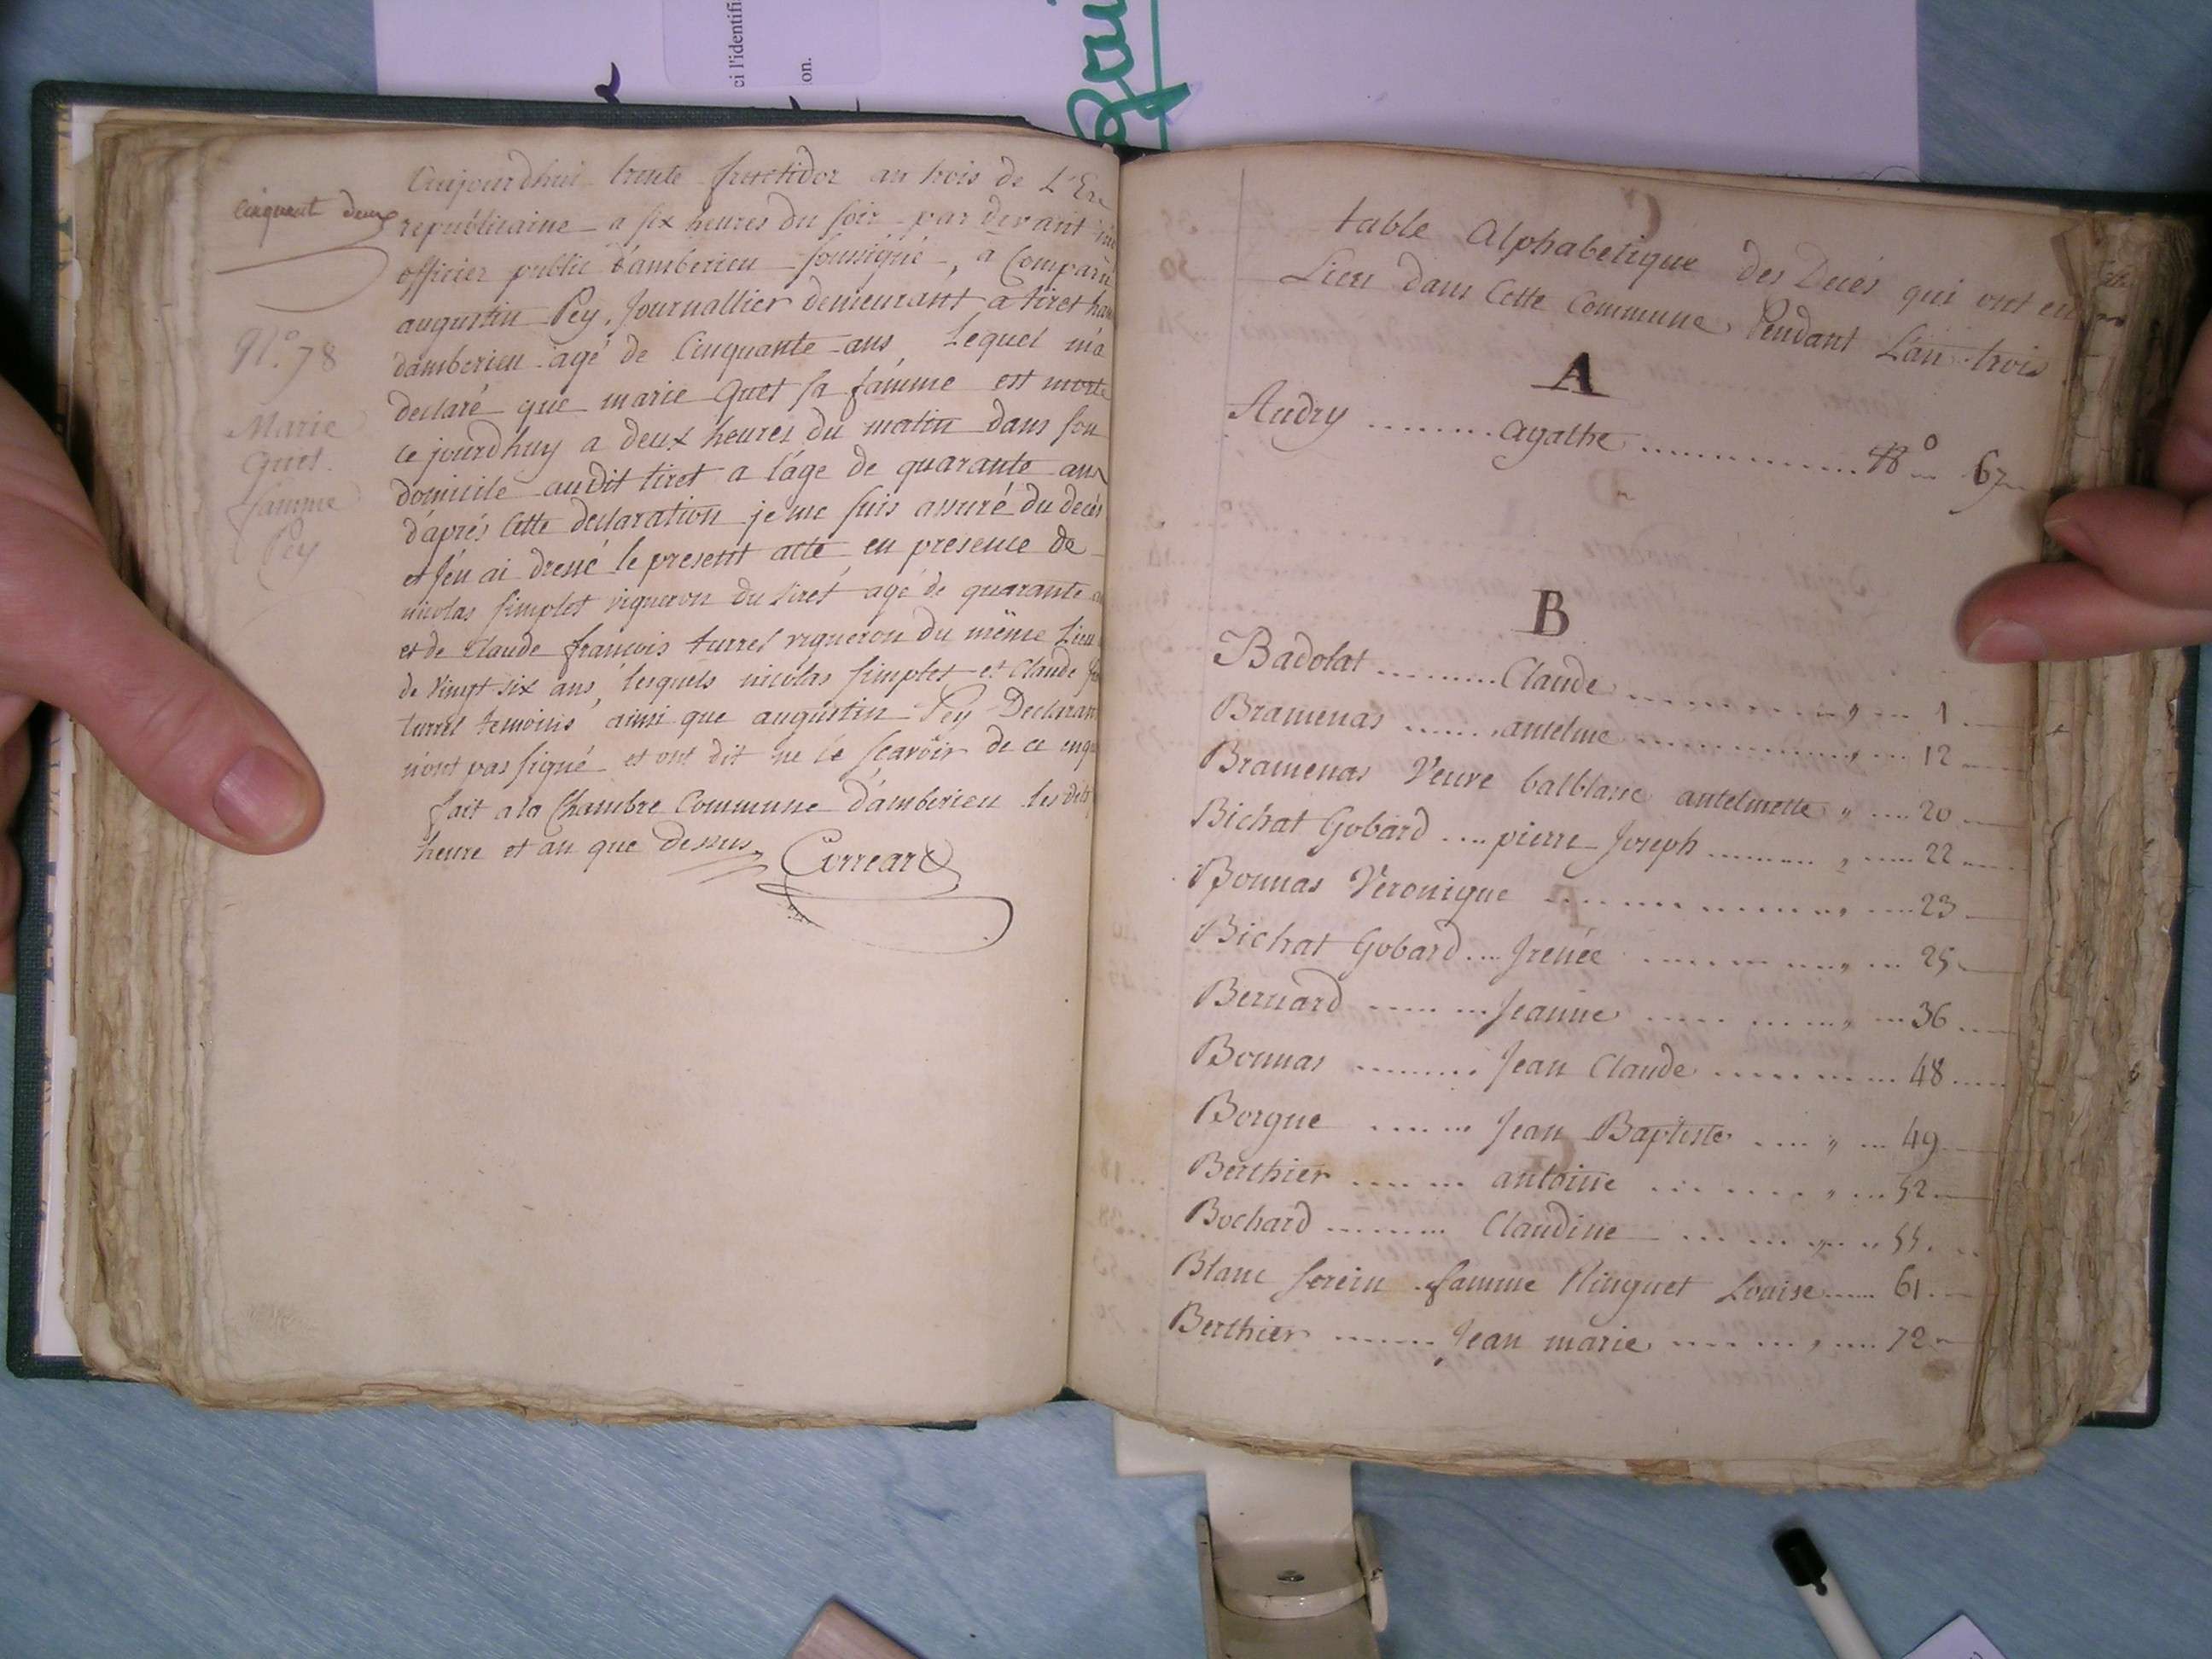 ci l'identifi
on.
Aujourdhui trente fructidor an trois de L'Ere
cinquant deux
republicaine a six heures du soir par devant
officier public d'amberieu soussigné, a Comparu
augustin Pey, Journallier demeurant a tiret ham
damberieu agé de Cinquante ans, Lequel m'a
N.º 78
declaré que marie Quet sa famme est morte
Marie
Quet.
famme
Pey
ce jourdhuy a deux heures du matin dans son
domicile audit tiret a l'âge de quarante ans
d'aprés Cette declaration je me suis assuré du decés
et j'en ai dressé le present acte en presence de
nicolas simplet vigneron du tiret agé de quarante
et de Claude françois turrel vigneron du même Lieu
de vingt six ans, lesquels nicolas simplet et Claude
turrel temoins ainsi que augustin Pey Declarant
n'ont pas signé et ont dit ne le sçavoir de ce enqu
fait a la Chambre Commune d'amberieu les dits
heure et an que dessus. Correard
table Alphabetique des Decés qui ont eu
Lieu dans Cette Commune Pendant L'an trois
A
Audry ........ agathe ............. N.º 67
B
Badolat ......... Claude ............ " ... 1
Bramenas ...... antelme ............ " ... 12
Bramenas Veuve balblanc antelmette " .... 20
Bichat Gobard .... pierre Joseph ........ " .... 22
Bonnas Veronique ............ " .... 23
Bichat Gobard .... Irenée ............ " ... 25
Bernard ........ Jeanne ............ " ... 36
Bonnas ........ Jean Claude ............ 48
Borgne ....... Jean Baptiste .... " ... 49
Berthier ....... antoine ........ " ... 52
Bochard ......... Claudine ........ " .. 55
Blanc serein famme Ninguet Louise ..... 61
Berthier ....... Jean marie ........ " .... 72